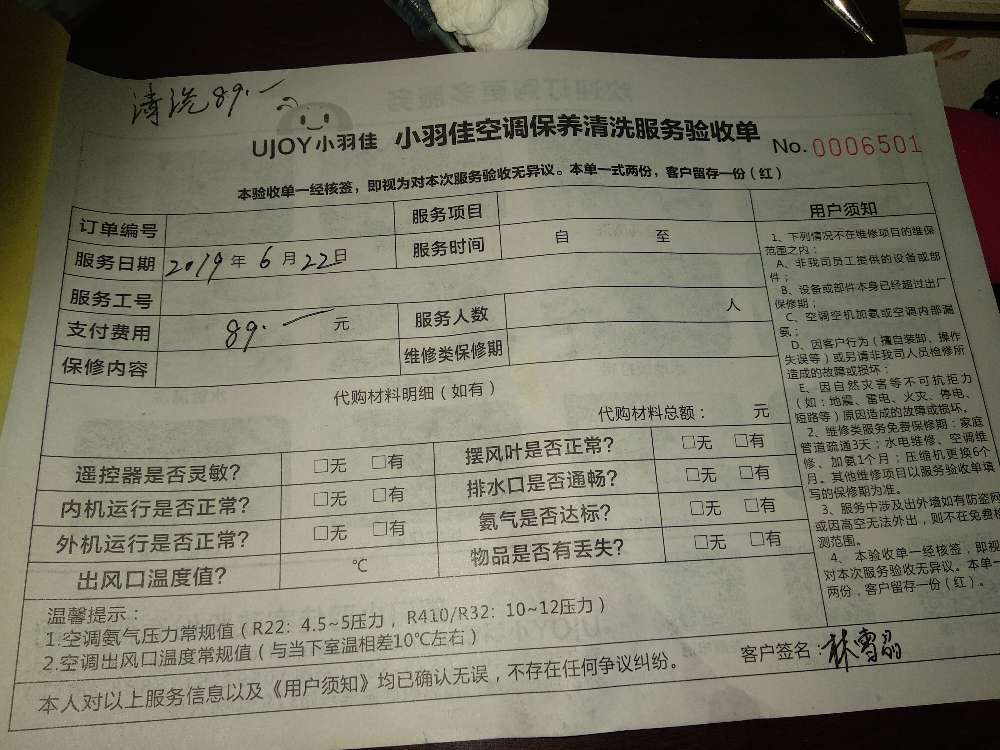 清洗89.一
UJOY小羽佳 小羽佳空调保养清洗服务验收单 No.0006501
本验收单一经核签，即视为对本次服务验收无异议。本单一式两份，客户留存一份（红）
订单编号 服务项目
服务日期 2019年6月22日 服务时间 自 至
服务工号
支付费用 89.一 元 服务人数 人
保修内容 维修类保修期
代购材料明细（如有）
代购材料总额： 元
遥控器是否灵敏？ □无 □有 摆风叶是否正常？ □无 □有
内机运行是否正常？ □无 □有 排水口是否通畅？ □无 □有
外机运行是否正常？ □无 □有 氨气是否达标？ □无 □有
出风口温度值？ ℃ 物品是否有丢失？ □无 □有
用户须知
1、下列情况不在维修项目的维保
范围之内：
A、非我司员工提供的设备或部
件；
B、设备或部件本身已经超过出厂
保修期；
C、空调空机加氨或空调内部漏
氨；
D、因客户行为（擅自装卸、操作
失误等）或另请非我司人员检修所
造成的故障或损坏；
E、因自然灾害等不可抗拒力
（如：地震、雷电、火灾、停电、
短路等）原因造成的故障或损坏。
2、维修类服务免费保修期：家庭
管道疏通3天；水电维修、空调维
修、加氨1个月；压缩机更换6个
月。其他维修项目以服务验收单填
写的保修期为准。
3、服务中涉及出外墙如有防盗网
或因高空无法外出，则不在免费检
测范围。
4、本验收单一经核签，即视
对本次服务验收无异议。本单一
两份，客户留存一份（红）。
温馨提示：
1.空调氨气压力常规值（R22：4.5~5压力，R410/R32：10~12压力）
2.空调出风口温度常规值（与当下室温相差10℃左右）
本人对以上服务信息以及《用户须知》均已确认无误，不存在任何争议纠纷。
客户签名：林雪晶